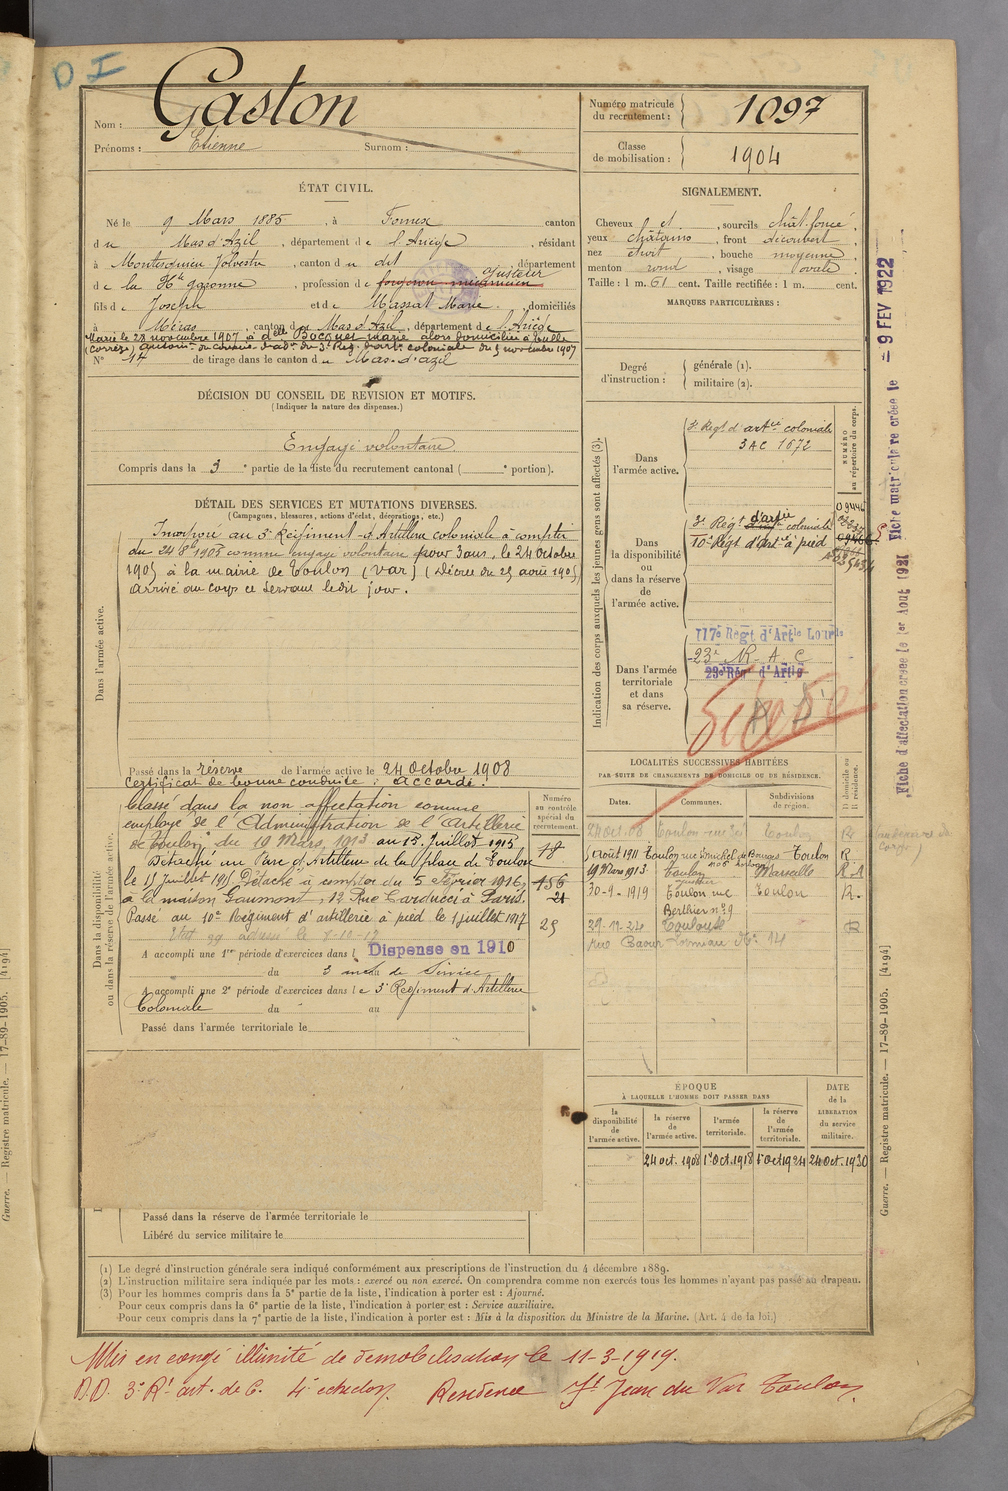 DI
Nom : Gaston
Prénoms : Etienne Surnom :
Numéro matricule du recrutement : 1097
Classe de mobilisation : 1904
ÉTAT CIVIL.
Né le 9 Mars 1885, à Fornex canton
du Mas d'Azil, département de l'Ariège, résidant
à Montesquieu Volvestre, canton du dit département
de la Hte Garonne, profession de ajusteur
fils de Joseph et de Massat Marie, domiciliés
à Méras, canton du Mas d'Azil, département de l'Ariège
Marié le 28 novembre 1907 à delle Bocquet Marie alors domiciliée à Tulle
(Corrèze) du 3e Reg. d'art. coloniale du 5 novembre 1907
N° 14 de tirage dans le canton du Mas-d'azil
SIGNALEMENT.
Cheveux et, sourcils chât. foncé,
yeux châtains, front découvert,
nez étroit, bouche moyenne,
menton rond, visage ovale,
Taille : 1 m. 61 cent. Taille rectifiée : 1 m. cent.
MARQUES PARTICULIÈRES :
Degré d'instruction : générale (1). militaire (2).
DÉCISION DU CONSEIL DE REVISION ET MOTIFS.
(Indiquer la nature des dispenses.)
Engagé volontaire
Compris dans la 3e partie de la liste du recrutement cantonal ( e portion).
DÉTAIL DES SERVICES ET MUTATIONS DIVERSES.
(Campagnes, blessures, actions d'éclat, décorations, etc.)
Dans l'armée active.
Incorporé au 3e Régiment d'Artillerie coloniale à compter
du 24 8bre 1905 comme engagé volontaire pour 3 ans, le 24 Octobre
1905 à la mairie de Toulon (Var) (Décret du 25 août 1905)
Arrivé au corps et servant ledit jour.
Passé dans la réserve de l'armée active le 24 octobre 1908
Certificat de bonne conduite : accordé.
Indication des corps auxquels les jeunes gens sont affectés (3).
NUMÉRO au répertoire du corps.
Dans l'armée active.
3e Regt d'artie coloniale
3 AC 1672
Dans la disponibilité ou dans la réserve de l'armée active.
3e Régt d'artie coloniale
10e Régt d'art à pied
Dans l'armée territoriale et dans sa réserve.
117e Regt d'Artie Lourde
23e R A C
23e Rég' d'Artie
Dans la disponibilité ou dans la réserve de l'armée active.
Numéro au contrôle spécial du recrutement.
Classé dans la non affectation comme
employé de l'Administration de l'Artillerie
de Toulon, du 19 Mars, 1913 au 15 Juillet 1915
Détaché au Parc d'Artillerie de la place de Toulon
le 15 Juillet 1915 Détaché à compter du 5 Février 1916
à la maison Gaumont, 12 Rue Carducci à Paris.
Passé au 10e Régiment d'artillerie à pied le 1 juillet 1917
18
156
21
25
A accompli une 1re période d'exercices dans l Dispensé en 1910
du 3 ans de Service
A accompli une 2e période d'exercices dans le 3e Régiment d'Artillerie
Coloniale du au
Passé dans l'armée territoriale le
LOCALITÉS SUCCESSIVES HABITÉES
PAR SUITE DE CHANGEMENTS DE DOMICILE OU DE RÉSIDENCE.
Dates. Communes. Subdivisions de région. D domicile ou R résidence.
24 Oct. 08 Toulon Toulon R
5 Août 1911 Toulon Toulon R
19 Mars 1913 Toulon Marseille R
30-9-1919 Toulon rue Toulon R.
Berthier n° 9
29-12-24 Toulouse R
rue Baour Lormian N° 14
ÉPOQUE
À LAQUELLE L'HOMME DOIT PASSER DANS
la disponibilité de l'armée active.
la réserve de l'armée active.
l'armée territoriale.
la réserve de l'armée territoriale.
DATE de la LIBÉRATION du service militaire.
24 oct. 1908 1er Oct. 1918 1er Oct 1924 24 Oct. 1930
Passé dans la réserve de l'armée territoriale le
Libéré du service militaire le
(1) Le degré d'instruction générale sera indiqué conformément aux prescriptions de l'instruction du 4 décembre 1889.
(2) L'instruction militaire sera indiquée par les mots : exercé ou non exercé. On comprendra comme non exercés tous les hommes n'ayant pas passé au drapeau.
(3) Pour les hommes compris dans la 5e partie de la liste, l'indication à porter est : Ajourné.
Pour ceux compris dans la 6e partie de la liste, l'indication à porter est : Service auxiliaire.
Pour ceux compris dans la 7e partie de la liste, l'indication à porter est : Mis à la disposition du Ministre de la Marine. (Art. 4 de la loi.)
Mis en congé illimité de démobilisation le 11-3-1919.
D.D. 3e Rt art. de C. 4e échelon. Résidence St Jean du Var Toulon
Fiche d'affectation créée le 1er Aout 1921 Fiche matriculaire créée le - 9 FEV 1922
Guerre. — Registre matricule. — 17-89-1905. [4194]
Guerre. — Registre matricule. — 17-89-1905. [4194]